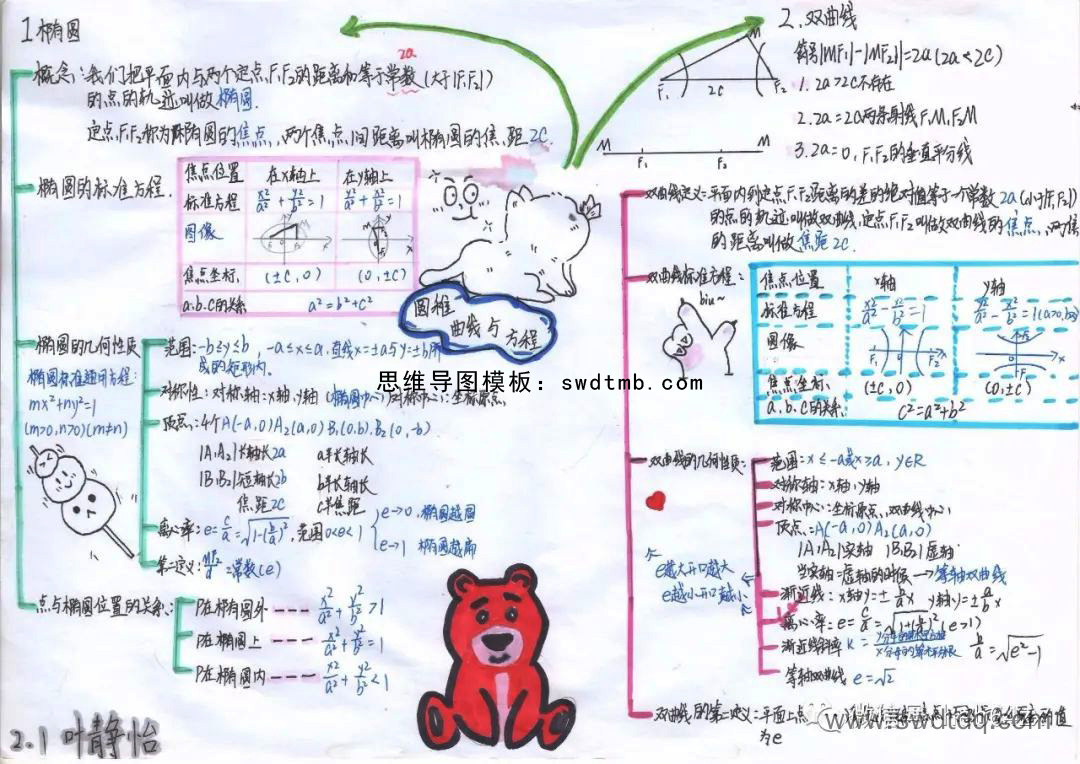 1 椭圆
概念：我们把平面内与两个定点F₁F₂的距离和等于常数(大于|F₁F₂|)
2a
的点的轨迹叫做椭圆.
定点F₁F₂称为椭圆的焦点，两个焦点间距离叫椭圆的焦距2C.
椭圆的标准方程.
焦点位置 在x轴上 在y轴上
标准方程 x²/a²+y²/b²=1
图像
焦点坐标. (±C,0) (0,±C)
a.b.c的关系 a²=b²+c²
圆锥
曲线与
方程
biu~
椭圆的几何性质
范围:-b≤y≤b, -a≤x≤a.直线x=±a与y=±b所
成的矩形内.
椭圆标准通用方程:
mx²+ny²=1
(m>0,n>0)(m≠n)
对称性:对称轴:x轴,y轴 (椭圆中心)对称中心:坐标原点.
顶点:4个A(-a,0)A₂(a,0)B₁(0,b).B₂(0,-b)
|A₁A₂|长轴长2a a半长轴长
|B₁B₂|短轴长2b b半长轴长
焦距2C c半焦距
离心率:e=c/a=√(1-(b/a)²),范围0<e<1
e→0,椭圆越圆
e→1 椭圆越扁
第二定义: =常数(e)
点与椭圆位置的关系:
P在椭圆外 --- x²/a²+y²/b²>1
P在椭圆上 --- x²/a²+y²/b²=1
P在椭圆内 --- x²/a²+y²/b²<1
2.1 叶静怡
思维导图模板：swdtmb.com
2.双曲线
|MF₁|-|MF₂|=2a(2a<2C)
1. 2a>2C不存在
2. 2a=2a两条射线F₁M,F₂M
3. 2a=0,F₁F₂的垂直平分线
M
F₁ 2C F₂
M F₁ F₂ M
双曲线定义:平面内到定点F₁F₂距离的差的绝对值等于一个常数2a(小于|F₁F₂|)
的点的轨迹叫做双曲线,定点F₁F₂叫做双曲线的焦点,两焦
的距离叫做焦距2C.
双曲线标准方程:
焦点位置 x轴 y轴
标准方程 x²/a²-y²/b²=1
图像
焦点坐标. (±C,0) (0,±C)
a.b.c的关系. c²=a²+b²
双曲线的几何性质:
范围:x≤-a或x≥a, y∈R
对称轴:x轴,y轴
对称中心:坐标原点,双曲线中心
顶点:A₁(-a,0)A₂(a,0)
|A₁A₂|实轴 |B₁B₂|虚轴
当实轴=虚轴的时候→等轴双曲线
渐近线: x轴y=±b/a x y轴y=±a/b x
e越大开口越大
e越小开口越小
离心率:e=c/a=√(1+(b/a)²)(e>1)
渐近线斜率 K= b/a=√(e²-1)
等轴双曲线 e=√2
双曲线的第二定义:平面上点
的值
为e
www.swdtdq.com